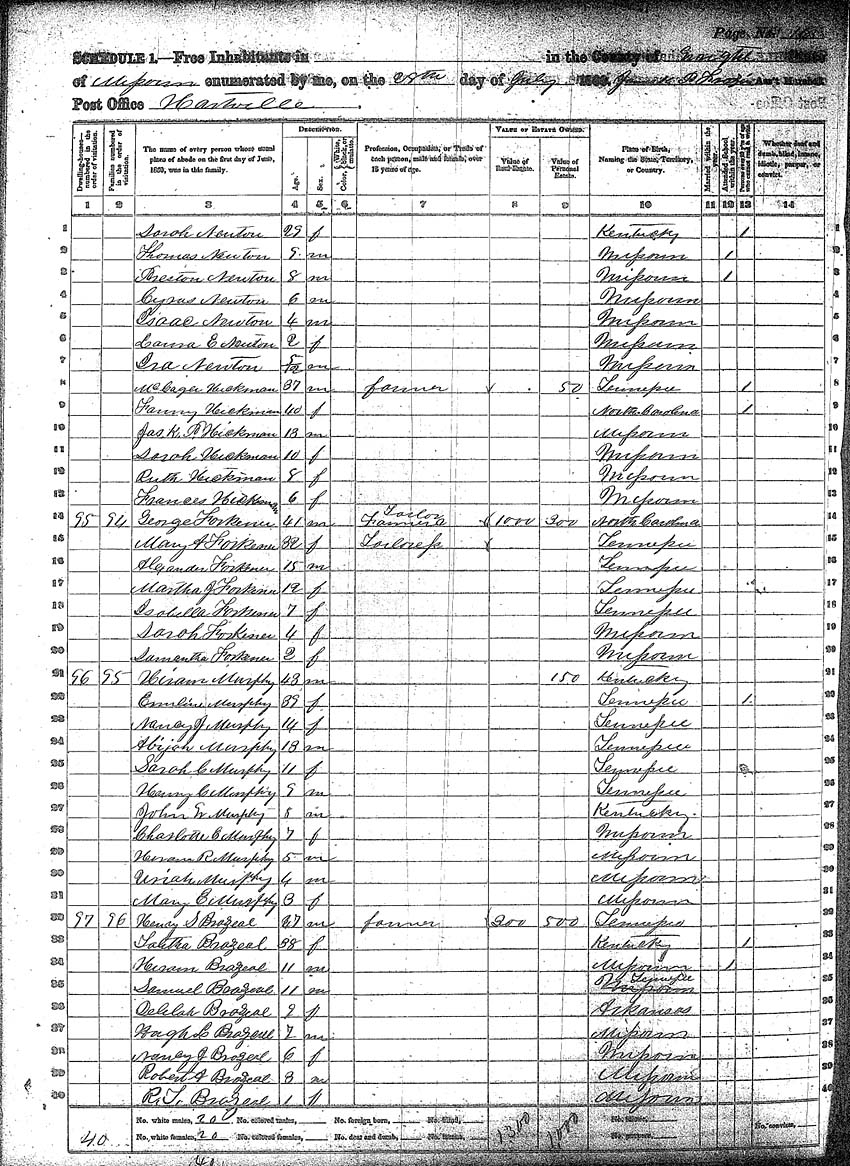 Page No.
SCHEDULE 1.—Free Inhabitants in in the County of Wright State
of Missouri enumerated by me, on the 28th day of July 1860. Ass't Marshal
Post Office Hartville
Dwelling-houses—numbered in the order of visitation.
Families numbered in the order of visitation.
The name of every person whose usual place of abode on the first day of June, 1860, was in this family.
DESCRIPTION.
Age.
Sex.
Color, White, black, or mulatto.
Profession, Occupation, or Trade of each person, male and female, over 15 years of age.
VALUE OF ESTATE OWNED.
Value of Real Estate.
Value of Personal Estate.
Place of Birth, Naming the State, Territory, or Country.
Married within the year.
Attended School within the year.
Whether deaf and dumb, blind, insane, idiotic, pauper, or convict.
1 2 3 4 5 6 7 8 9 10 11 12 13 14
1 Sarah Newton 29 f Kentucky 1 1
2 Thomas Newton 9 m Missouri 1 2
3 Preston Newton 8 m Missouri 1 3
4 Cyrus Newton 6 m Missouri 4
5 Isaac Newton 4 m Missouri 5
6 Laura E Newton 2 f Missouri 6
7 Ira Newton 5/12 m Missouri 7
8 McCager Hickman 37 m farmer 50 Tennessee 1 8
9 Fanny Hickman 40 f North Carolina 1 9
10 Jas. K. P. Hickman 13 m Missouri 10
11 Sarah Hickman 10 f Missouri 11
12 Ruth Hickman 8 f Missouri 12
13 Frances Hickman 6 f Missouri 13
14 95 94 George Forkner 41 m Tailor Farmer 1000 300 North Carolina 14
15 Mary A Forkner 32 f Tailoress Tennessee 15
16 Alexander Forkner 15 m Tennessee 16
17 Martha J Forkner 12 f Tennessee 17
18 Isabella Forkner 7 f Tennessee 18
19 Sarah Forkner 4 f Missouri 19
20 Samantha Forkner 2 f Missouri 20
21 96 95 Hiram Murphy 43 m 150 Kentucky 21
22 Emeline Murphy 39 f Tennessee 1 22
23 Nancy J Murphy 14 f Tennessee 23
24 Abijah Murphy 13 m Tennessee 24
25 Sarah C Murphy 11 f Tennessee 25
26 Henry C Murphy 9 m Tennessee 26
27 John W Murphy 8 m Kentucky 27
28 Charlotte C Murphy 7 f Missouri 28
29 Hiram R Murphy 5 m Missouri 29
30 Uriah Murphy 4 m Missouri 30
31 Mary E Murphy 3 f Missouri 31
32 97 96 Henry S Brazeal 27 m farmer 300 500 Tennessee 32
33 Talitha Brazeal 38 f Kentucky 1 33
34 Hiram Brazeal 11 m Missouri 1 34
35 Samuel Brazeal 11 m Tennessee 35
36 Delilah Brazeal 9 f Arkansas 36
37 Hugh L Brazeal 7 m Missouri 37
38 Nancy J Brazeal 6 f Missouri 38
39 Robert A Brazeal 3 m Missouri
R. T. Brazeal 1 f Missouri 40
40 No. white males, 20 No. colored males, No. foreign born, No. blind, 1300 1000
No. white females, 20 No. colored females, No. deaf and dumb, No. convicts,